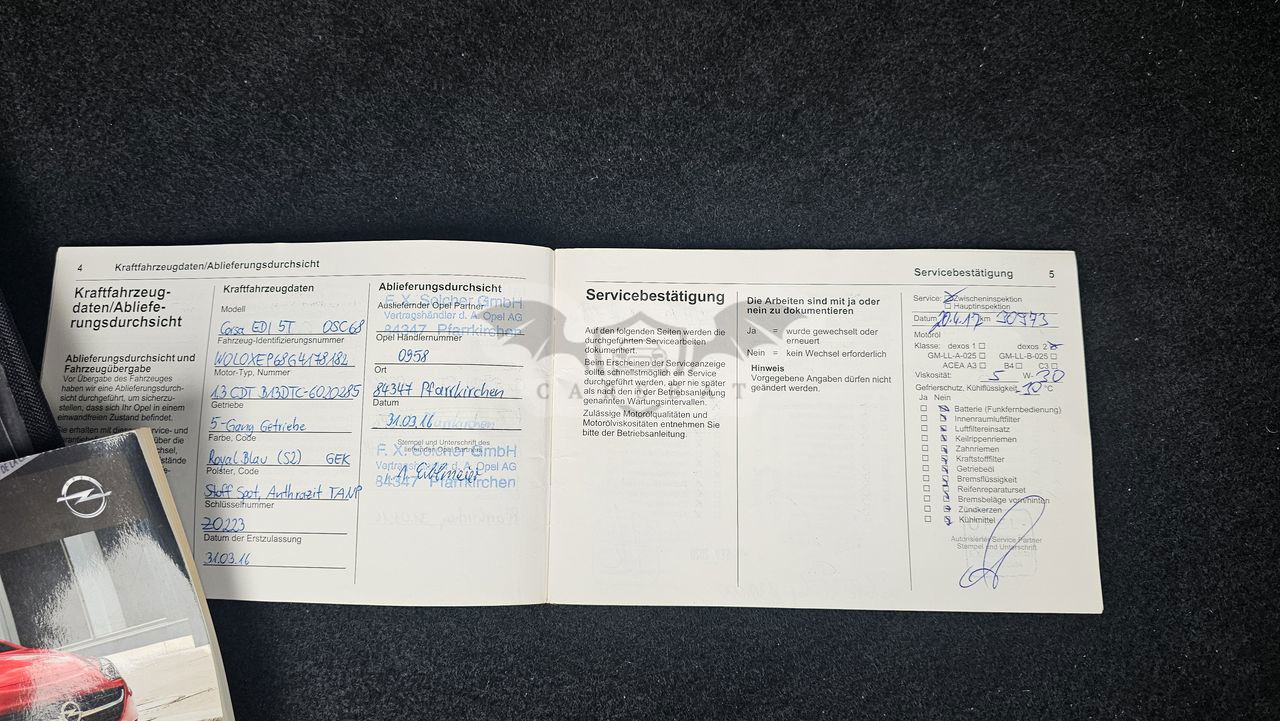 4 Kraftfahrzeugdaten/Ablieferungsdurchsicht
Kraftfahrzeug-
daten/Abliefe-
rungsdurchsicht
Ablieferungsdurchsicht und
Fahrzeugübergabe
Vor Übergabe des Fahrzeuges
haben wir eine Ablieferungsdurch-
sicht durchgeführt, um sicherzu-
stellen, dass sich Ihr Opel in einem
einwandfreien Zustand befindet.
Sie erhalten mit dieser Service- und
Kraftfahrzeugdaten
Modell
Corsa EDI 5T OSC68
Fahrzeug-Identifizierungsnummer
W0L0XEP68G4178182
Motor-Typ, Nummer
1.3 CDT B13DTC-6020285
Getriebe
5-Gang Getriebe
Farbe, Code
Royal Blau (S2) GEK
Polster, Code
Stoff Spot, Anthrazit TANP
Schlüsselnummer
Z0223
Datum der Erstzulassung
31.03.16
Ablieferungsdurchsicht
Ausliefernder Opel Partner
F. X. Solcher GmbH
Vertragshändler d. A. Opel AG
84347 Pfarrkirchen
Opel Händlernummer
0958
Ort
84347 Pfarrkirchen
Datum
31.03.16
Stempel und Unterschrift des
ausliefernden Opel Partners
F. X. Solcher GmbH
Vertragshändler d. A. Opel AG
84347 Pfarrkirchen
Servicebestätigung 5
Servicebestätigung
Auf den folgenden Seiten werden die
durchgeführten Servicearbeiten
dokumentiert.
Beim Erscheinen der Serviceanzeige
sollte schnellstmöglich ein Service
durchgeführt werden, aber nie später
als nach den in der Betriebsanleitung
genannten Wartungsintervallen.
Zulässige Motorölqualitäten und
Motorölviskositäten entnehmen Sie
bitte der Betriebsanleitung.
Die Arbeiten sind mit ja oder
nein zu dokumentieren
Ja = wurde gewechselt oder
erneuert
Nein = kein Wechsel erforderlich
Hinweis
Vorgegebene Angaben dürfen nicht
geändert werden.
Service: Zwischeninspektion
Hauptinspektion
Datum 20.4.17 km 30973
Motoröl
Klasse: dexos 1 dexos 2
GM-LL-A-025 GM-LL-B-025
ACEA A3 B4 C3
Viskosität: 5 W- 30
Gefrierschutz, Kühlflüssigkeit °C
Ja Nein
Batterie (Funkfernbedienung)
Innenraumluftfilter
Luftfiltereinsatz
Keilrippenriemen
Zahnriemen
Kraftstofffilter
Getriebeöl
Bremsflüssigkeit
Reifenreparaturset
Bremsbeläge vorn/hinten
Zündkerzen
Kühlmittel
Autorisierter Service Partner
Stempel und Unterschrift